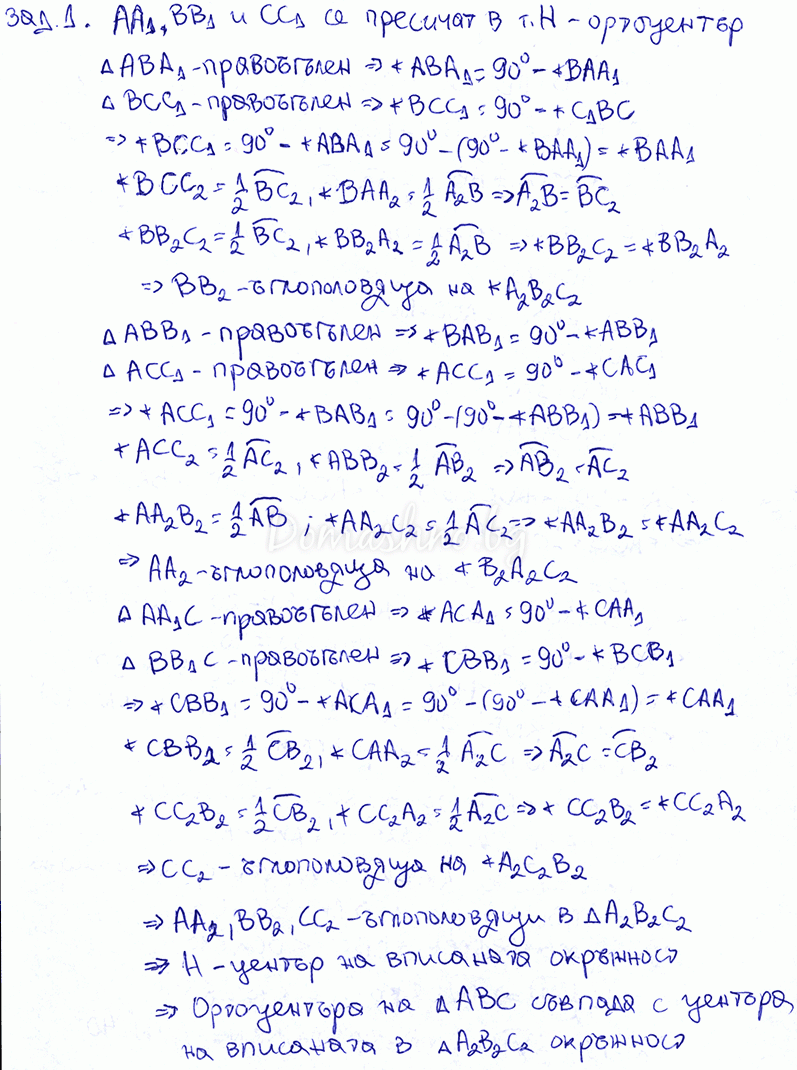 зад.1. AA₁, BB₁ и CC₁ се пресичат в т. H - ортоцентър
△ ABA₁ - правоъгълен ⇒ ∢ABA₁ = 90° - ∢BAA₁
△ BCC₁ - правоъгълен ⇒ ∢BCC₁ = 90° - ∢C₁BC
⇒ ∢BCC₁ = 90° - ∢ABA₁ = 90° - (90° - ∢BAA₁) = ∢BAA₁
∢BCC₂ = 1/2 B͡C₂, ∢BAA₂ = 1/2 A͡₂B ⇒ A͡₂B = B͡C₂
∢BB₂C₂ = 1/2 B͡C₂, ∢BB₂A₂ = 1/2 A͡₂B ⇒ ∢BB₂C₂ = ∢BB₂A₂
⇒ BB₂ - ъглополовяща на ∢A₂B₂C₂
△ ABB₁ - правоъгълен ⇒ ∢BAB₁ = 90° - ∢ABB₁
△ ACC₁ - правоъгълен ⇒ ∢ACC₁ = 90° - ∢CAC₁
⇒ ∢ACC₁ = 90° - ∢BAB₁ = 90° - (90° - ∢ABB₁) = ∢ABB₁
∢ACC₂ = 1/2 A͡C₂, ∢ABB₂ = 1/2 A͡B₂ ⇒ A͡B₂ = A͡C₂
∢AA₂B₂ = 1/2 A͡B ; ∢AA₂C₂ = 1/2 A͡C₂ ⇒ ∢AA₂B₂ = ∢AA₂C₂
Domashno.bg
⇒ AA₂ - ъглополовяща на ∢B₂A₂C₂
△ AA₁C - правоъгълен ⇒ ∢ACA₁ = 90° - ∢CAA₁
△ BB₁C - правоъгълен ⇒ ∢CBB₁ = 90° - ∢BCB₁
⇒ ∢CBB₁ = 90° - ∢ACA₁ = 90° - (90° - ∢CAA₁) = ∢CAA₁
∢CBB₂ = 1/2 C͡B₂, ∢CAA₂ = 1/2 A͡₂C ⇒ A͡₂C = C͡B₂
∢CC₂B₂ = 1/2 C͡B₂, ∢CC₂A₂ = 1/2 A͡₂C ⇒ ∢CC₂B₂ = ∢CC₂A₂
⇒ CC₂ - ъглополовяща на ∢A₂C₂B₂
⇒ AA₂, BB₂, CC₂ - ъглополовящи в △A₂B₂C₂
⇒ H - център на вписаната окръжност
⇒ Ортоцентъра на △ABC съвпада с центъра
на вписаната в △A₂B₂C₂ окръжност